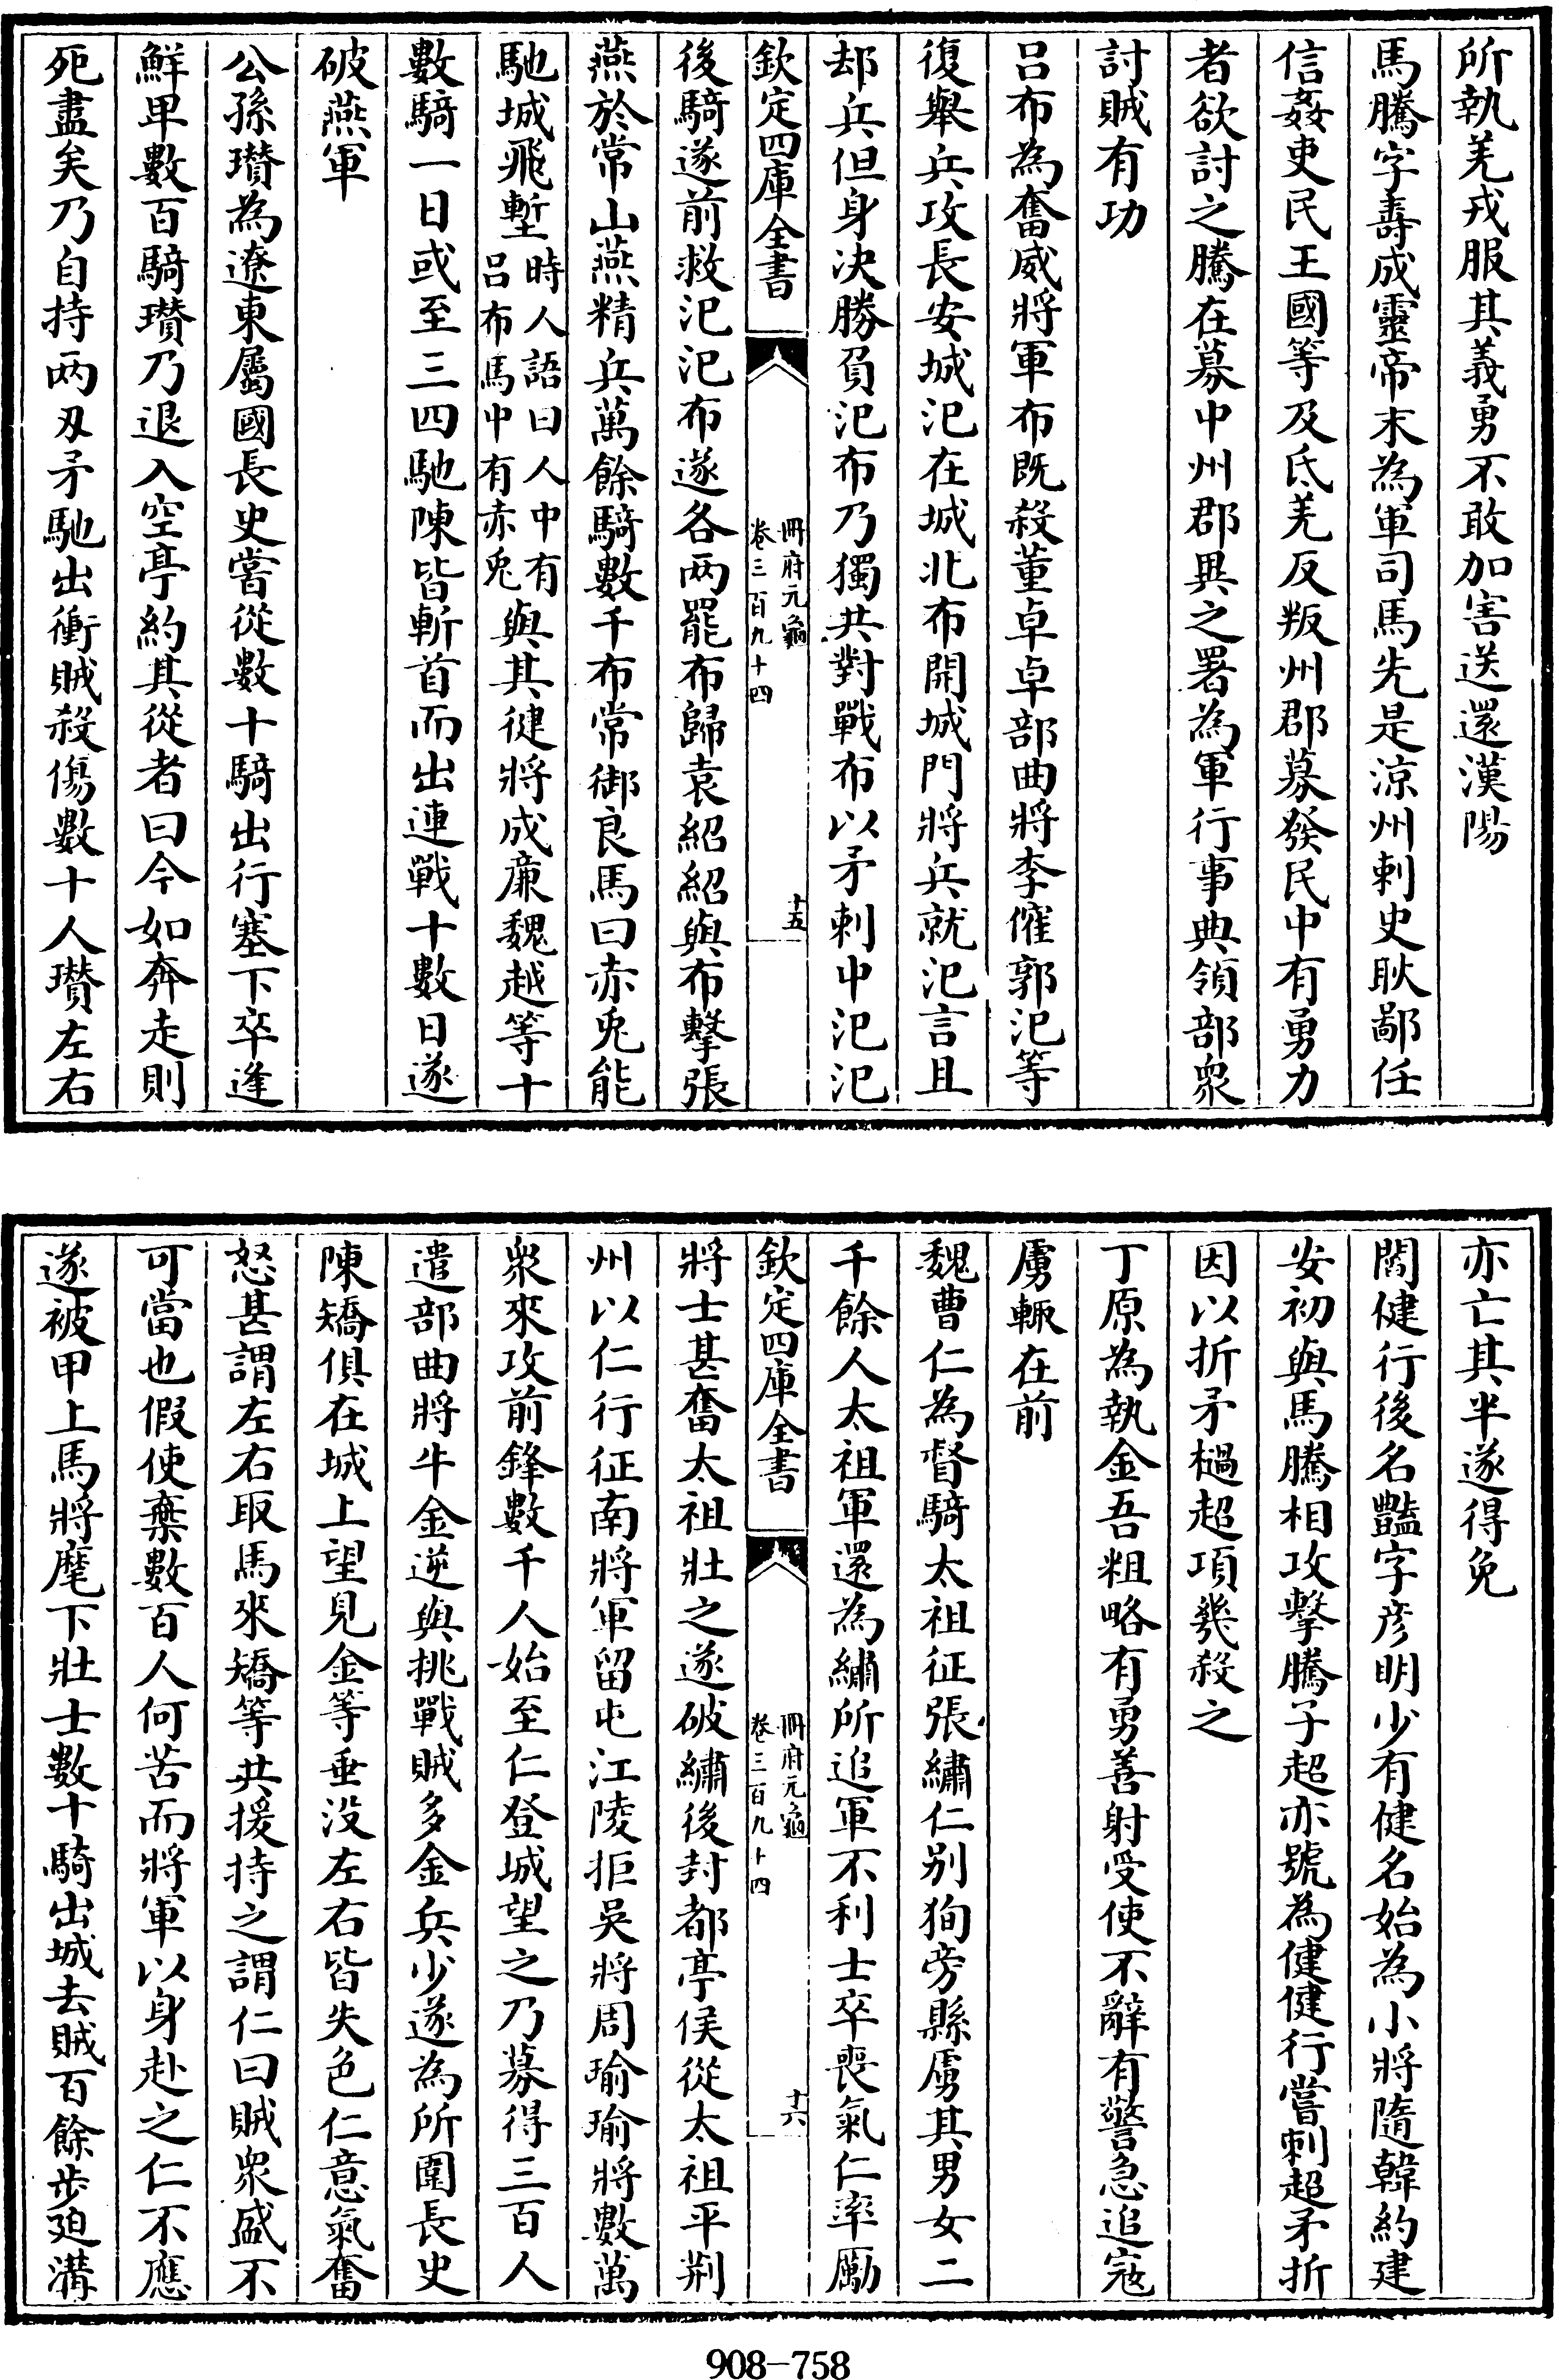 所執羌戎服其義勇不敢加害送還漢陽
馬騰字壽成靈帝末為軍司馬先是涼州刺史耿鄙任
信姦吏民王國等及氐羌反叛州郡募發民中有勇力
者欲討之騰在募中州郡異之署為軍行事典領部眾
討賊有功
吕布為奮威將軍布既殺董卓卓部曲將李傕郭汜等
復舉兵攻長安城汜在城北布開城門將兵就汜言且
却兵但身決勝負汜布乃獨共對戰布以矛刺中汜汜
欽定四庫全書
冊府元龜
卷三百九十四
十五
後騎遂前救汜汜布遂各两罷布歸袁紹紹與布擊張
燕於常山燕精兵萬餘騎數千布常御良馬曰赤兎能
馳城飛塹時人語曰人中有吕布馬中有赤兎與其健將成廉魏越等十
數騎一日或至三四馳陳皆斬首而出連戰十數日遂
破燕軍
公孫瓚為遼東屬國長史嘗從數十騎出行塞下卒逢
鮮卑數百騎瓚乃退入空亭約其從者曰今如奔走則
死盡矣乃自持两刄矛馳出衝賊殺傷數十人瓚左右
亦亡其半遂得免
閻健行後名豔字彦明少有健名始為小將隨韓約建
安初與馬騰相攻擊騰子超亦號為健健行嘗刺超矛折
因以折矛檛超項幾殺之
丁原為執金吾粗略有勇善射受使不辭有警急追寇
虜輒在前
魏曹仁為督騎太祖征張繡仁别狥旁縣虜其男女二
千餘人太祖軍還為繡所追軍不利士卒喪氣仁率厲
欽定四庫全書
冊府元龜
卷三百九十四
十六
將士甚奮太祖壯之遂破繡後封都亭侯從太祖平荆
州以仁行征南將軍留屯江陵拒吳將周瑜瑜將數萬
眾來攻前鋒數千人始至仁登城望之乃募得三百人
遣部曲將牛金逆與挑戰賊多金兵少遂為所圍長史
陳矯俱在城上望見金等垂沒左右皆失色仁意氣奮
怒甚謂左右取馬來矯等共援持之謂仁曰賊眾盛不
可當也假使棄數百人何苦而將軍以身赴之仁不應
遂被甲上馬將麾下壯士數十騎出城去賊百餘步廹溝
908-758